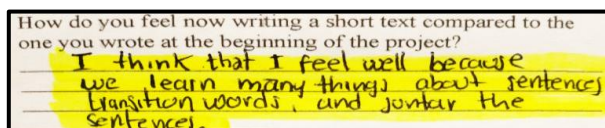 How do you feel now writing a short text compared to the
one you wrote at the beginning of the project?
I think that I feel well because
we learn many things about sentences
transition words, and juntar the
sentences.